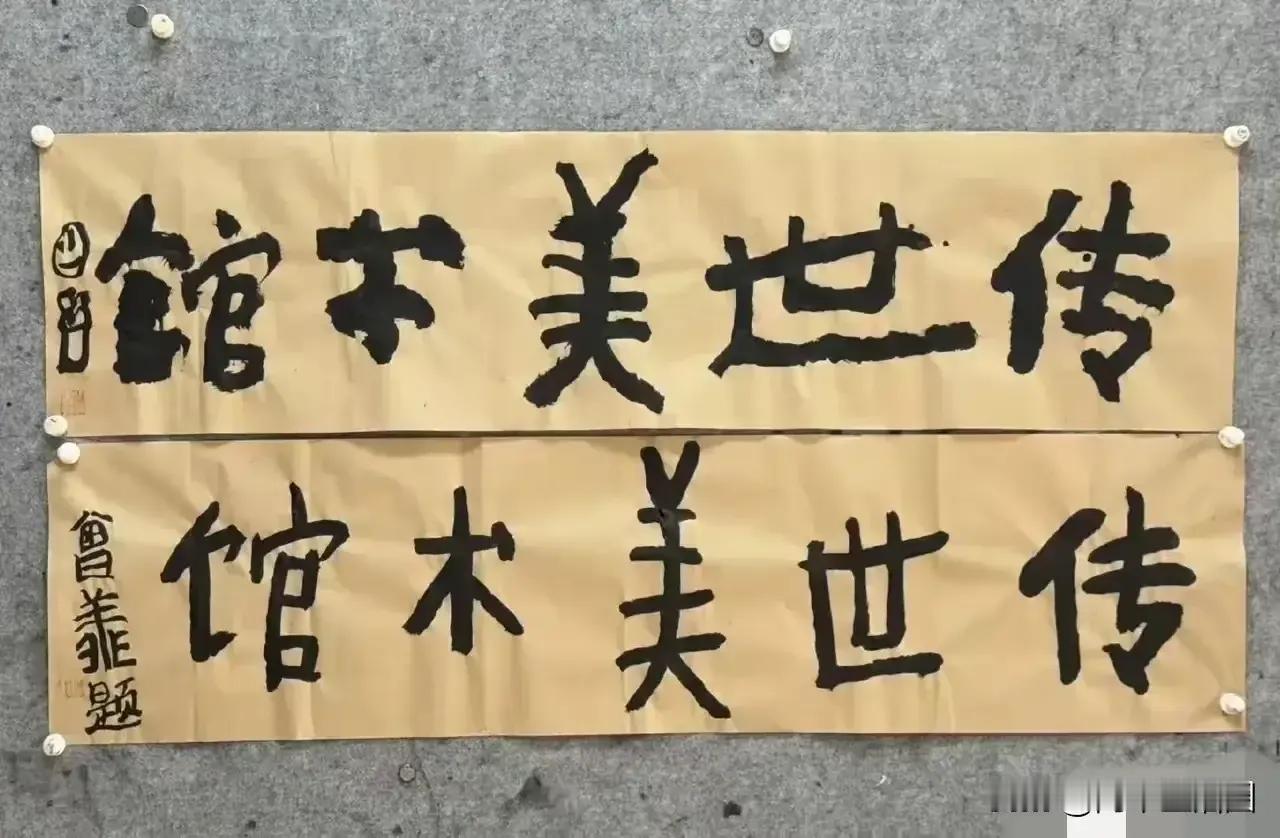 传世美术館
传世美术馆
曾翔题